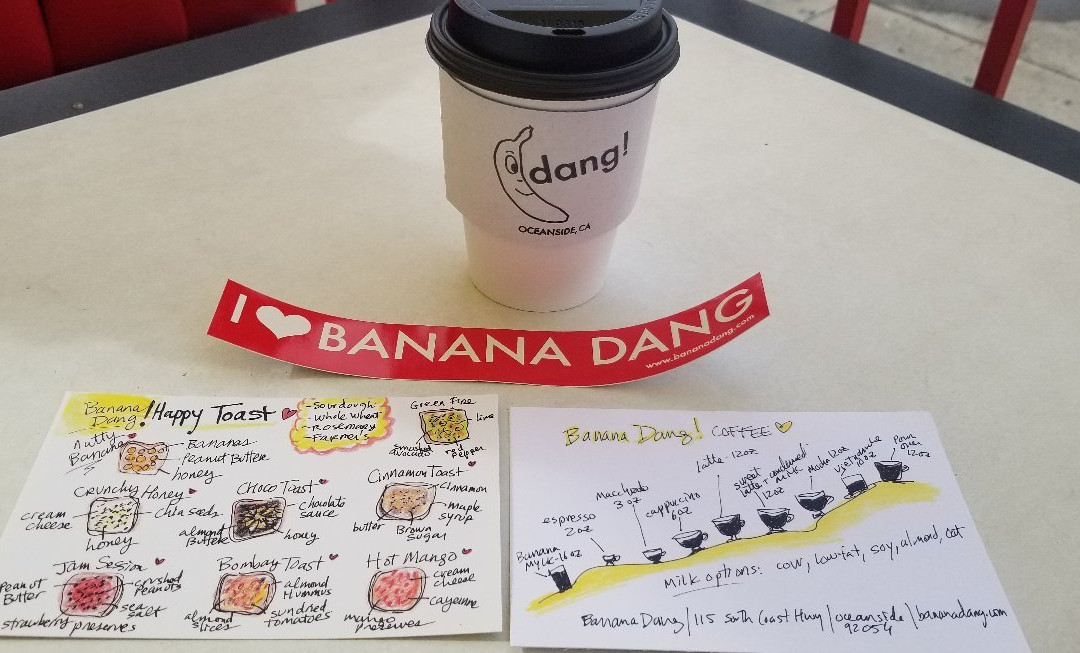 dang!
OCEANSIDE, CA
I ♥ BANANA DANG
www.bananadang.com
Banana Dang! Happy Toast
- Sourdough
- Whole Wheat
- Rosemary
- Farmer's
Green Fire
lime
smashed avocado
red pepper
Nutty Banana
Bananas
Peanut Butter
honey
Crunchy Honey
cream cheese
chia seeds
honey
Choco Toast
chocolate sauce
almond Butter
honey
Cinnamon Toast
cinnamon
maple syrup
butter
Brown Sugar
Jam Session
Peanut Butter
crushed Peanuts
sea salt
strawberry preserves
Bombay Toast
almond Hummus
almond slices
sundried tomatoes
Hot Mango
cream cheese
cayenne
mango preserves
Banana Dang! COFFEE
Banana Mylk-16oz
espresso 2oz
Macchiato 3oz
cappuccino 6oz
latte-12oz
sweet latte + condensed milk 12oz
mocha 12oz
vietnamese 10oz
Pour over 12oz
Milk options: cow, lowfat, soy, almond, oat
Banana Dang / 115 South Coast Hwy / oceanside 92054 / bananadang.com